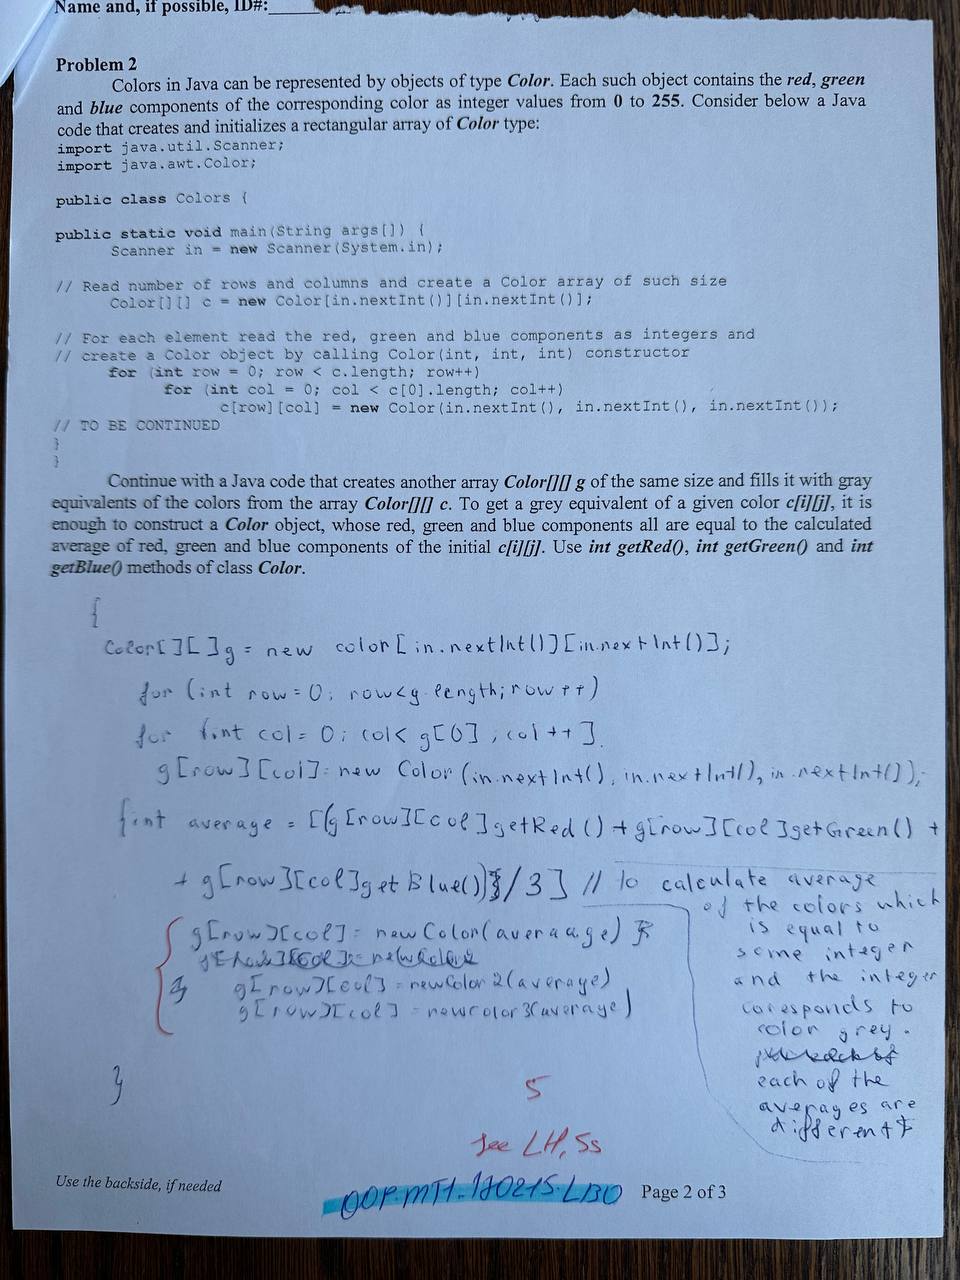 Name and, if possible, ID#:
Problem 2
Colors in Java can be represented by objects of type Color. Each such object contains the red, green
and blue components of the corresponding color as integer values from 0 to 255. Consider below a Java
code that creates and initializes a rectangular array of Color type:
import java.util.Scanner;
import java.awt.Color;
public class Colors {
public static void main(String args[]) {
Scanner in = new Scanner(System.in);
// Read number of rows and columns and create a Color array of such size
Color[][] c = new Color[in.nextInt()][in.nextInt()];
// For each element read the red, green and blue components as integers and
// create a Color object by calling Color(int, int, int) constructor
for (int row = 0; row < c.length; row++)
for (int col = 0; col < c[0].length; col++)
c[row][col] = new Color(in.nextInt(), in.nextInt(), in.nextInt());
// TO BE CONTINUED
}
}
Continue with a Java code that creates another array Color[][] g of the same size and fills it with gray
equivalents of the colors from the array Color[][] c. To get a grey equivalent of a given color c[i][j], it is
enough to construct a Color object, whose red, green and blue components all are equal to the calculated
average of red, green and blue components of the initial c[i][j]. Use int getRed(), int getGreen() and int
getBlue() methods of class Color.
{
Color[][]g = new color[in.nextInt()][in.nextInt()];
for (int row=0; row<g.length; row++)
for (int col= 0; col< g[0]; col++].
g[row][col]=new Color(in.nextInt(), in.nextInt(), in.nextInt());
{int average = [(g[row][col]getRed()+g[row][col]getGreen()+
+ g[row][col]getBlue())/3] // to calculate average
of the colors which
is equal to
some integer
and the integer
coresponds to
color grey.
each of the
averages are
different
g[row][col]= newColor(averaage)
g[row][col]=newcolor2(average)
g[row][col] = newcolor3(average)
}
5
See LH, Ss
Use the backside, if needed
OOP.MT1.170215.LBO
Page 2 of 3